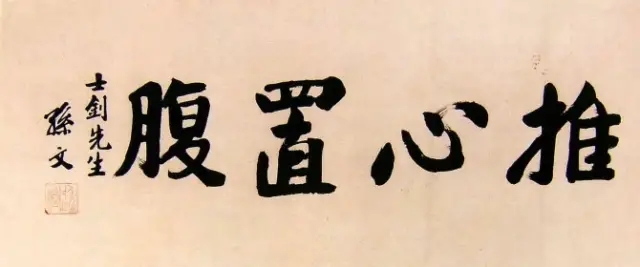 推心置腹
士釗先生
孫文